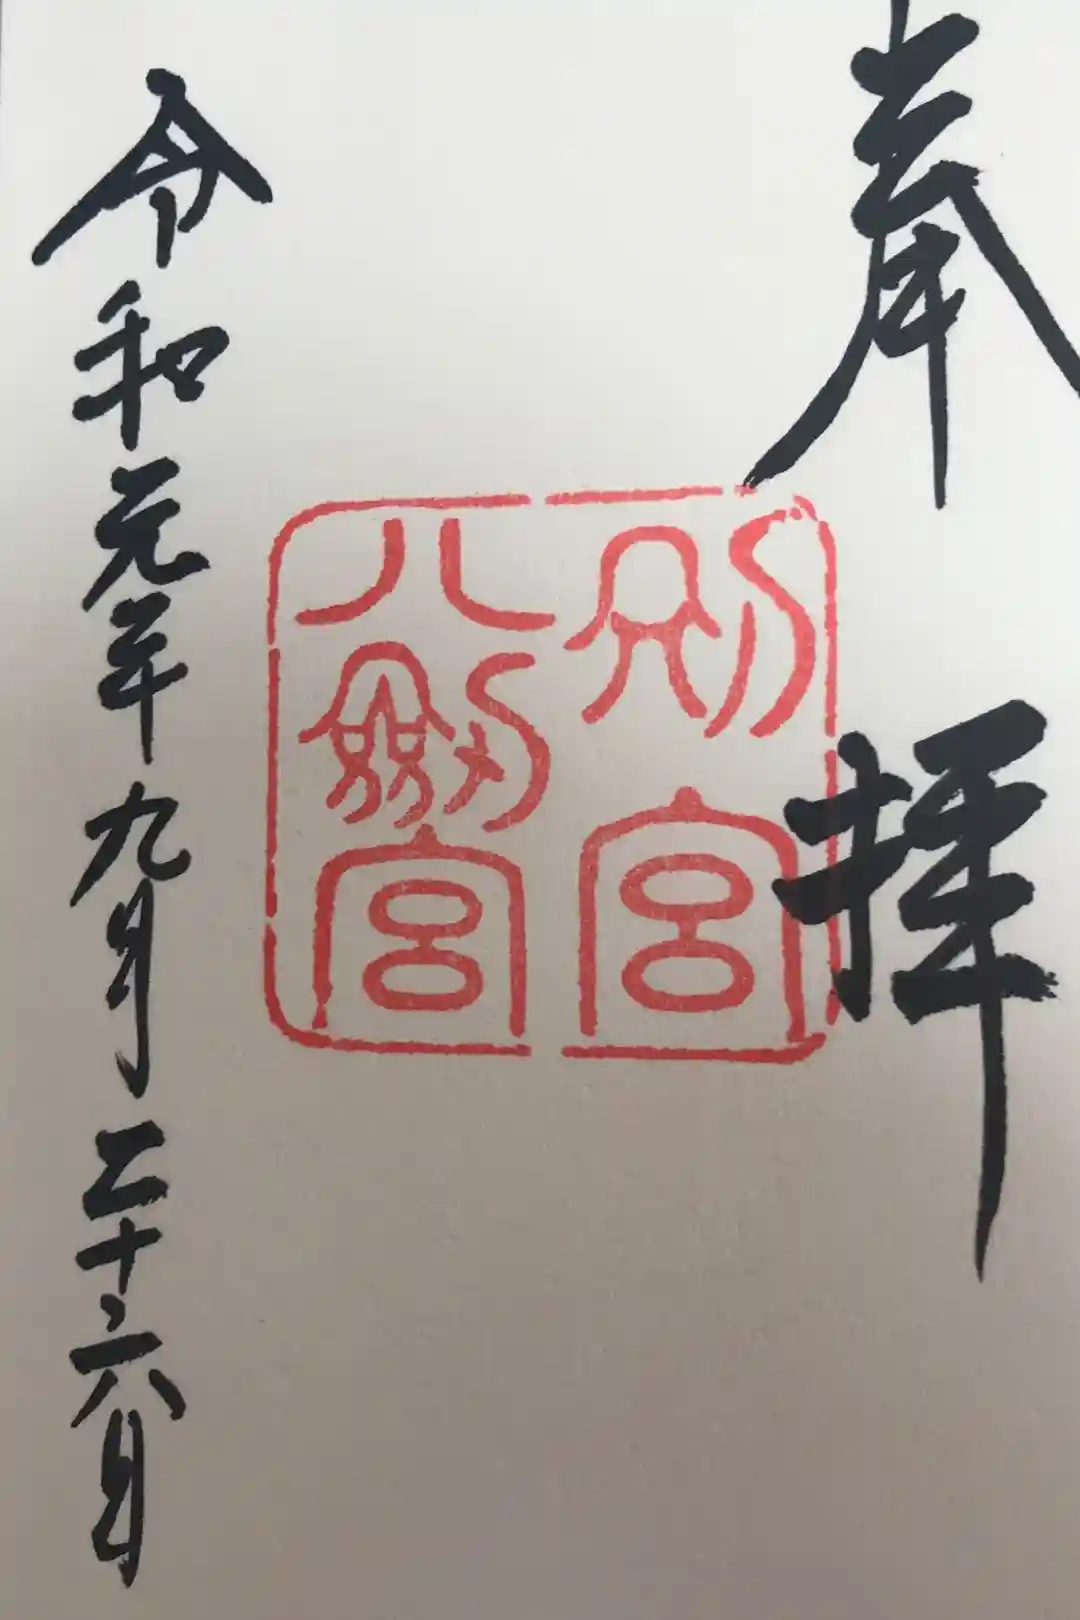 奉拝
別宮
八劔宮
令和元年九月二十六日